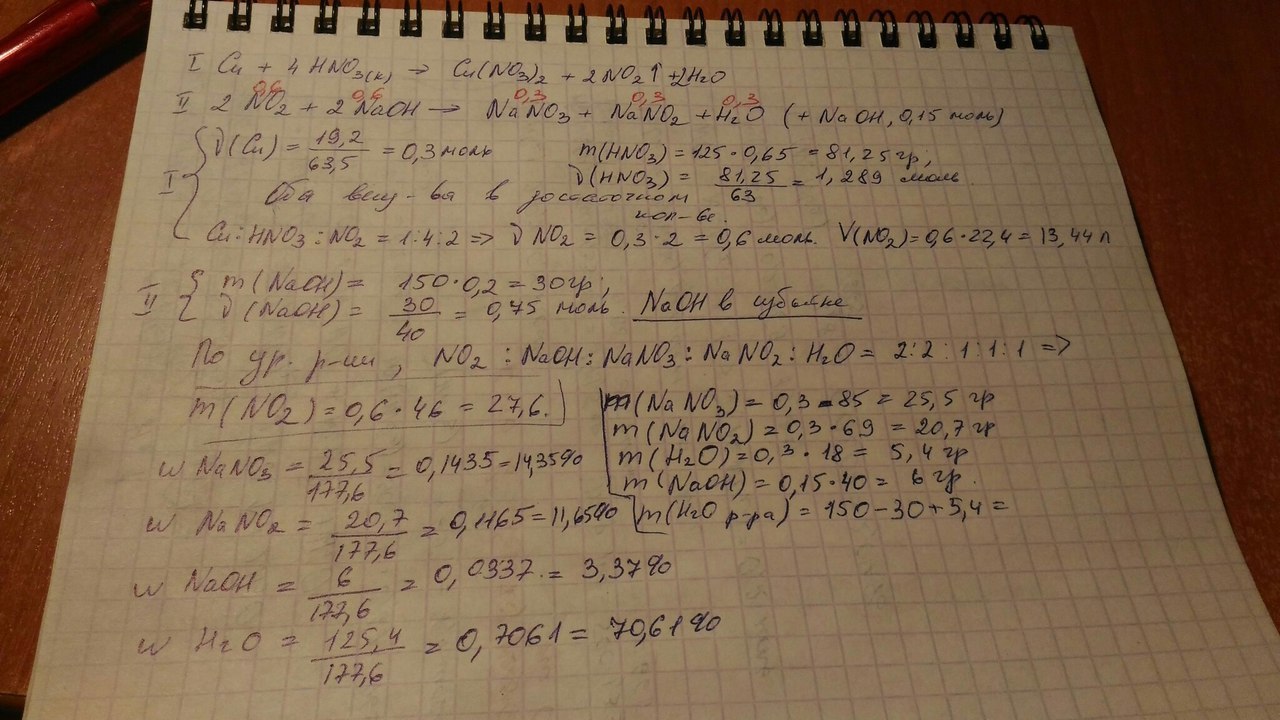 I Cu + 4 HNO3(к) → Cu(NO3)2 + 2NO2↑ + 2H2O
0,6 0,6 0,3 0,3 0,3
II 2 NO2 + 2 NaOH → NaNO3 + NaNO2 + H2O (+ NaOH, 0,15 моль)
I { ν(Cu) = 19,2/63,5 = 0,3 моль m(HNO3) = 125 · 0,65 = 81,25 гр;
ν(HNO3) = 81,25/63 = 1,289 моль.
Оба вещ-ва в достаточном
кол-ве.
Cu : HNO3 : NO2 = 1:4:2 => ν NO2 = 0,3 · 2 = 0,6 моль. V(NO2) = 0,6 · 22,4 = 13,44 л
II { m(NaOH) = 150 · 0,2 = 30 гр;
ν(NaOH) = 30/40 = 0,75 моль. NaOH в избытке
По ур. р-ии, NO2 : NaOH : NaNO3 : NaNO2 : H2O = 2:2:1:1:1 =>
m(NO2) = 0,6 · 46 = 27,6.
m(NaNO3) = 0,3 · 85 = 25,5 гр
m(NaNO2) = 0,3 · 69 = 20,7 гр
m(H2O) = 0,3 · 18 = 5,4 гр
m(NaOH) = 0,15 · 40 = 6 гр.
m(H2O р-ра) = 150 - 30 + 5,4 =
w NaNO3 = 25,5/177,6 = 0,1435 = 14,35%
w NaNO2 = 20,7/177,6 = 0,1165 = 11,65%
w NaOH = 6/177,6 = 0,0337 = 3,37%
w H2O = 125,4/177,6 = 0,7061 = 70,61%